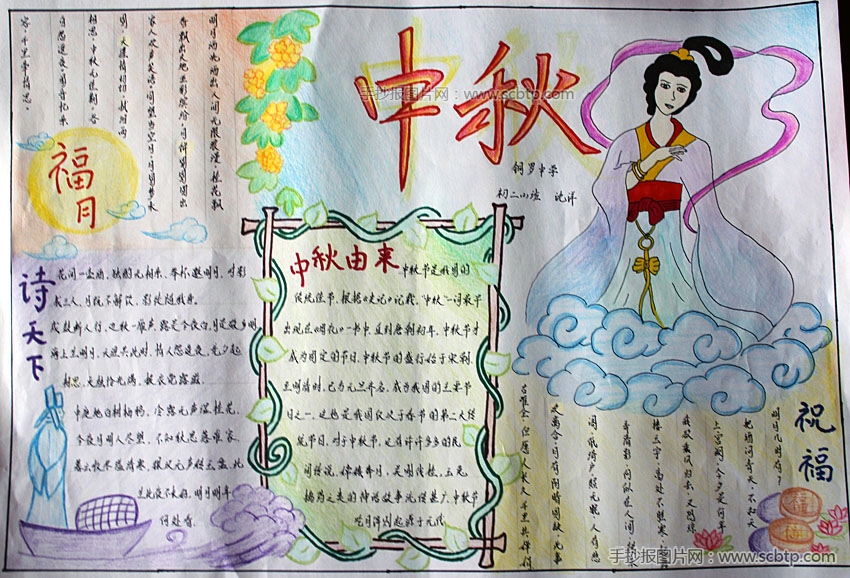 中秋
手抄报图片网:www.scbtp.com
铜罗中学
初二(4)班 沈洋
香飘出天地五彩缤纷,月饼圆圆圆出
家人欢声笑语,问声当空月,月圆梦未
容,千里寄相思。
福
月
诗天下
花间一壶酒,独酌无相亲。举杯邀明月,对影
成三人。月既不解饮,影徒随我身。
戍鼓断人行,边秋一雁声。露是今夜白,月是故乡明。
海上生明月,天涯共此时。情人怨遥夜,竟夕起
相思。灭烛怜光满,披衣觉露滋。
中庭地白树栖鸦,冷露无声湿桂花。
今夜月明人尽望,不知秋思落谁家。
暮云收尽溢清寒,银汉无声转玉盘。此
生此夜不长好,明月明年
何处看。
中秋由来
中秋节是我国的
传统佳节。根据《史记》记载,“中秋”一词最早
出现在《周礼》一书中,直到唐朝初年,中秋节才
成为固定的节日。中秋节的盛行始于宋朝,
至明清时,已与元旦齐名,成为我国的主要节
日之一。这也是我国仅次于春节的第二大传
统节日。对于中秋节,还有许许多多的民
间传说。嫦娥奔月,吴刚伐桂,玉兔
捣药之类的神话故事流传甚广。中秋节
吃月饼则起源于元代
祝福
明月几时有?
把酒问青天。不知天
上宫阙,今夕是何年
我欲乘风归去,又恐琼
楼玉宇,高处不胜寒。
弄清影,何似在人间。转朱
阁,低绮户,照无眠。人有悲
欢离合,月有阴晴圆缺,此事
古难全。但愿人长久,千里共婵娟
福
手抄报图片网:www.scbtp.com